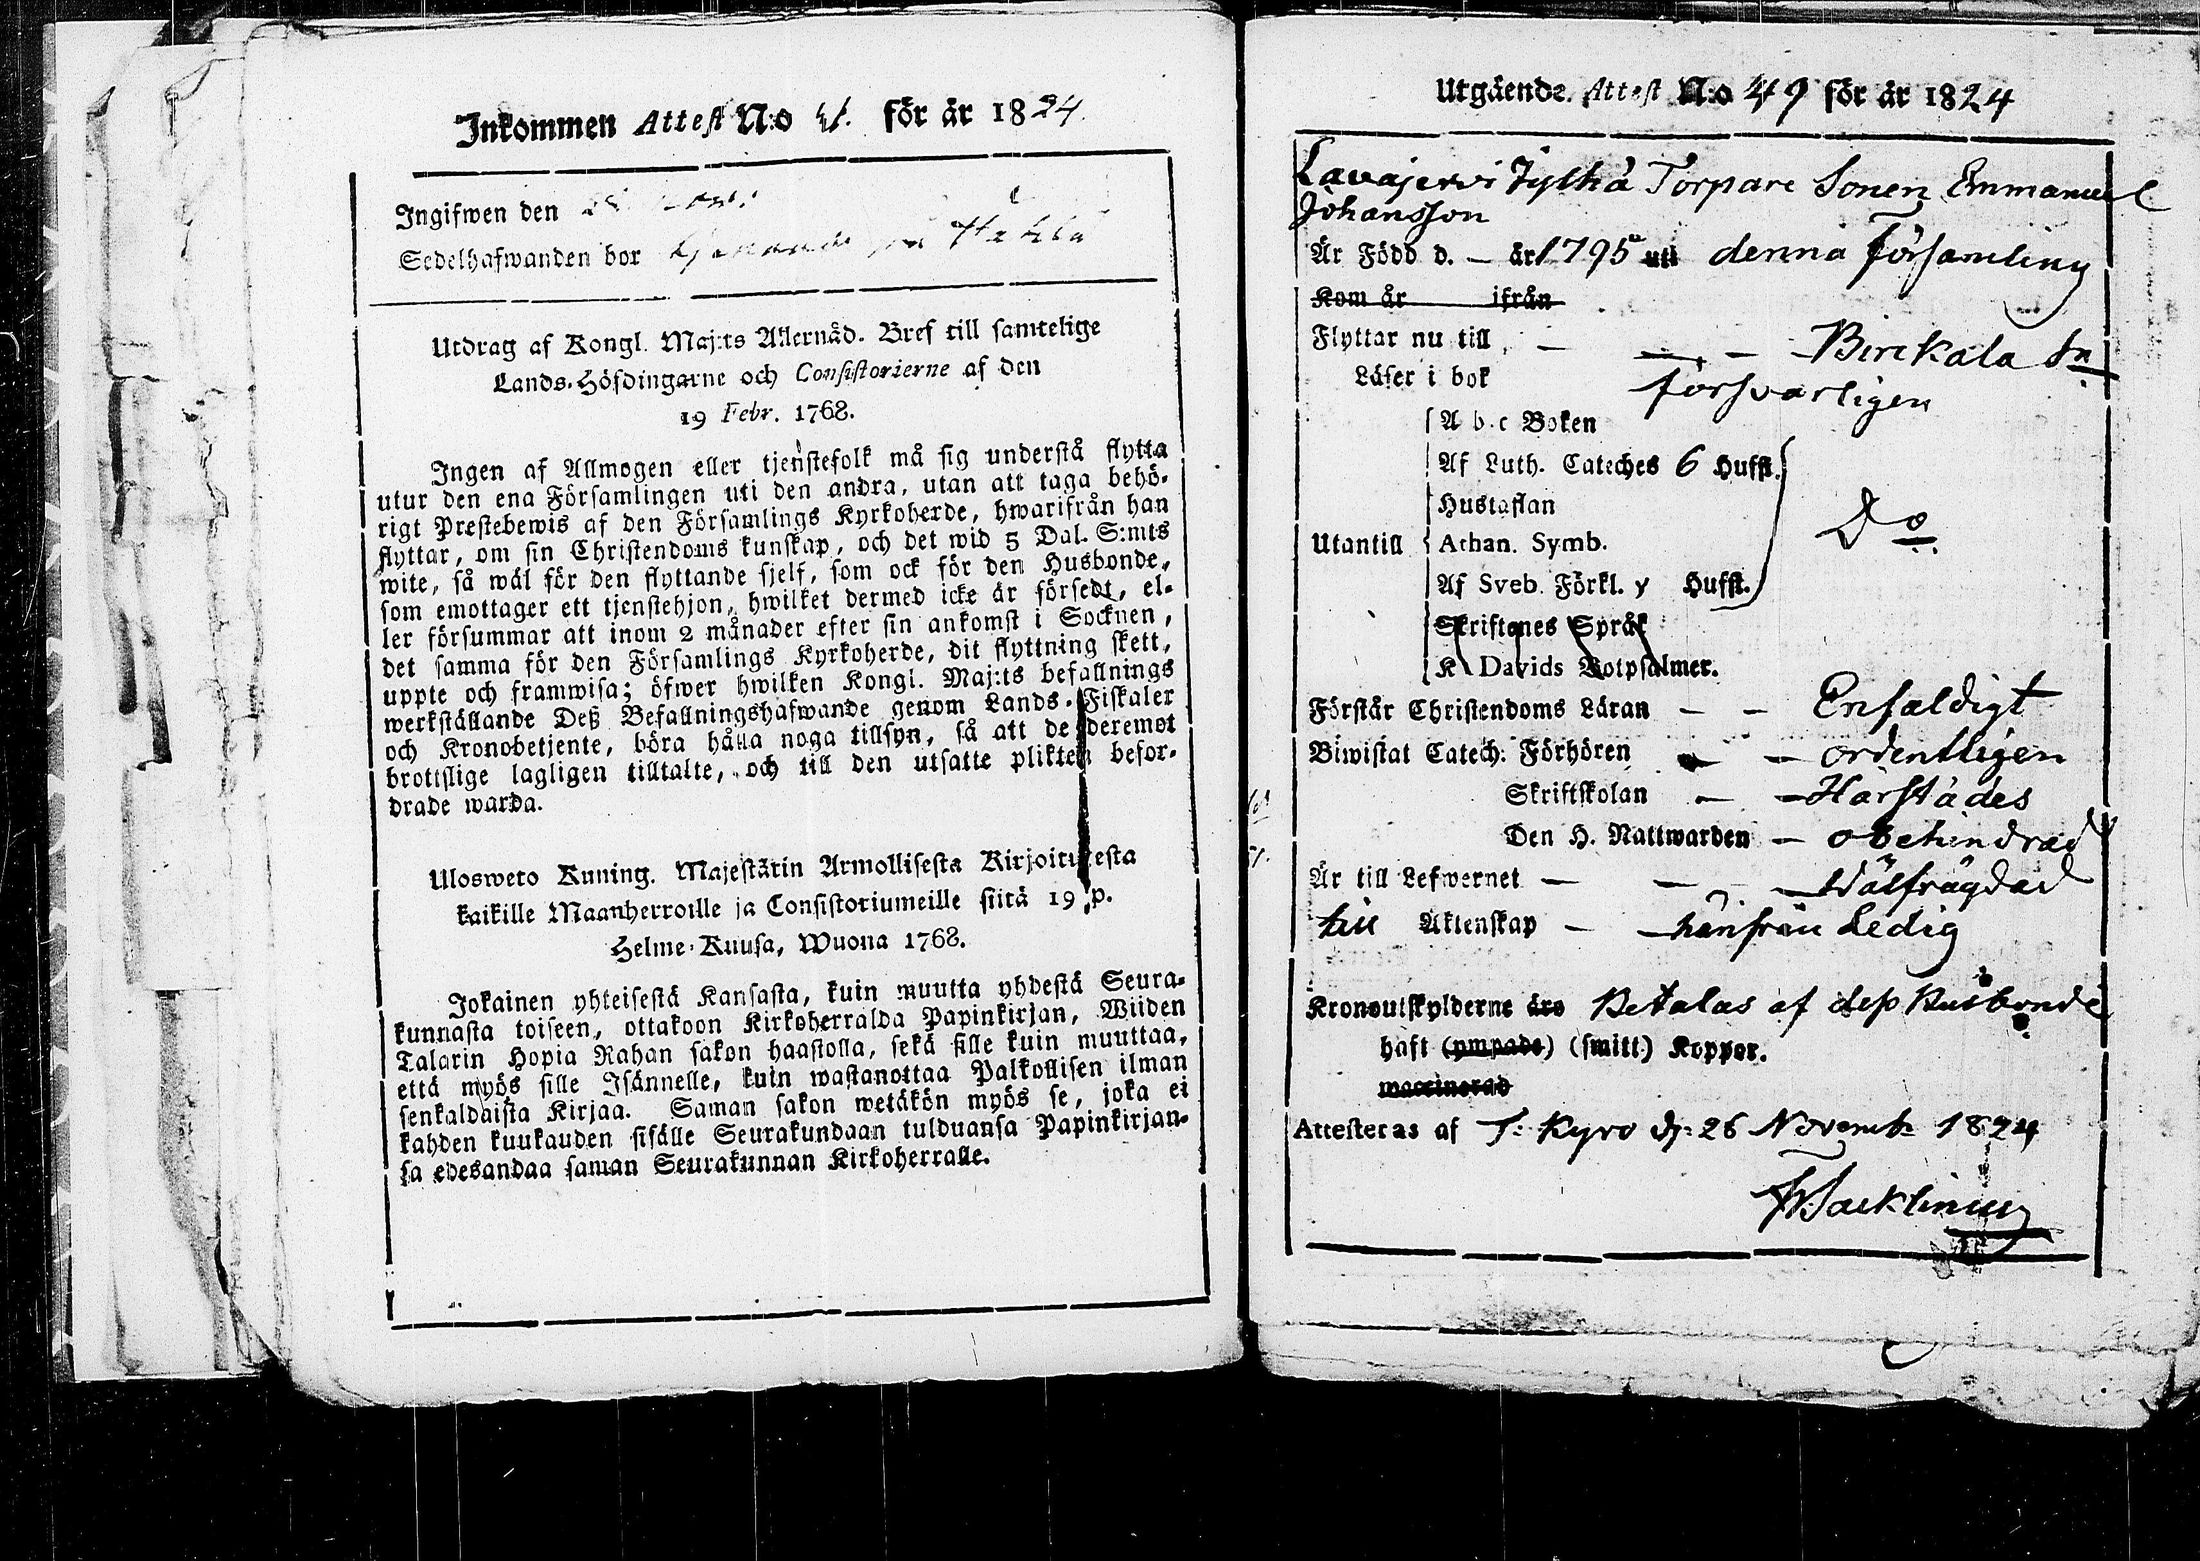 Inkommen Attest N:o 41. för år 1824.
Ingifwen den
Sedelhafwanden bor
Utdrag af Kongl. Maj:ts Allernåd. Bref till samtelige
Lands-Höfdingarne och Consistorierne af den
19 Febr. 1768.
Ingen af Allmogen eller tjenstefolk må sig understå flytta
utur den ena Församlingen uti den andra, utan att taga behö-
rigt Prestebewis af den Församlings Kyrkoherde, hwarifrån han
flyttar, om sin Christendoms kunskap, och det wid 5 Dal. S:mts
wite, så wäl för den flyttande sjelf, som ock för den Husbonde,
som emottager ett tjenstehjon, hwilket dermed icke är försedt, el-
ler försummar att inom 2 månader efter sin ankomst i Socknen,
det samma för den Församlings Kyrkoherde, dit flyttning skett,
uppte och framwisa; öfwer hwilken Kongl. Maj:ts befallnings
werkställande Deß Befallningshafwande genom Lands-Fiskaler
och Kronobetjente, böra hålla noga tillsyn, så att de deremot
brottslige lagligen tilltalte, och till den utsatte plikten befor-
drade warda.
Ulosweto Kuning. Majestätin Armollisesta Kirjoituxesta
kaikille Maanherroille ja Consistoriumeille siitä 19 p.
Helme-Kuusa, Wuona 1768.
Jokainen yhteisestä Kansasta, kuin muutta yhdestä Seura-
kunnasta toiseen, ottakoon Kirkoherralda Papinkirjan, Wiiden
Talarin Hopia Rahan sakon haastolla, sekä sille kuin muuttaa,
että myös sille Isännelle, kuin wastanottaa Palkollisen ilman
senkaldaista Kirjaa. Saman sakon wetäkön myös se, joka ei
kahden kuukauden sisälle Seurakundaan tulduansa Papinkirjan-
sa edesandaa saman Seurakunnan Kirkoherralle.
Utgående Attest N:o 49 för år 1824
Lavajervi Jylhä Torpare Sonen Emmanuel
Johansson
Är Född d. — år 1795 uti denna Församling
Kom år ifrån
Flyttar nu till — — — Birckala Sn
Läser i bok försvarligen
A b c Boken
Af Luth. Cateches 6 Hufst.
Hustaflan
Utantill Athan. Symb. Do
Af Sveb. Förkl. y Hufst.
Skriftenes Språk
K Davids Botpsalmer.
Förstår Christendoms Läran — — Enfaldigt
Biwistat Catech. Förhören — — ordentligen
Skriftskolan — — Härstädes
Den H. Nattwarden — obehindrad
Är till Lefwernet — — — Wälfrägdad
till Äktenskap — härifrån Ledig
Kronoutskylderne äro Betalas af dess Husbonde
haft (ympade) (smitt) Koppor.
waccinerad
Attesteras af T: Kyro d: 26 Novemb: 1824